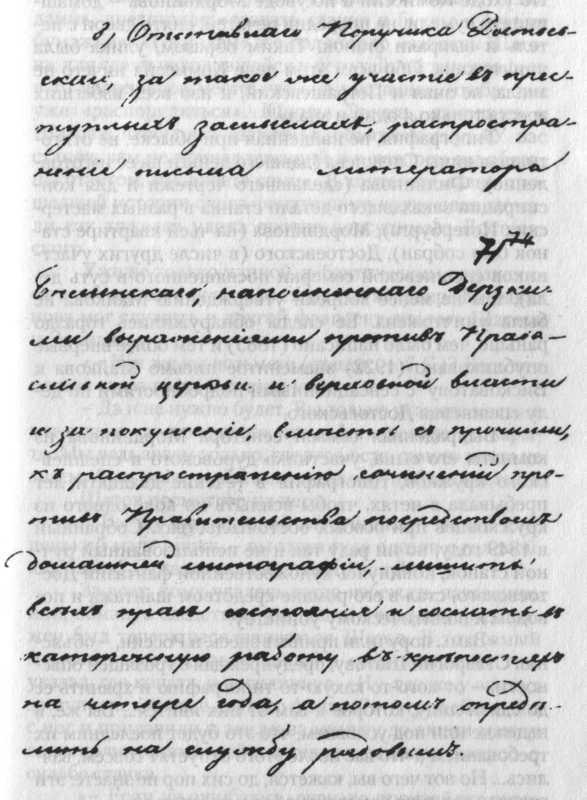 б) Отставнаго Поручика Достоев-
скаго, за таковое же участiе въ прес-
тупныхъ замыслахъ, распростра-
ненiе письма литератора
74
Бѣлинскаго, наполненнаго дерзки-
ми выраженiями противъ Право-
славной церкви и верховной власти
и за покушенiе, вмѣстѣ съ прочими,
къ распространенiю сочиненiй про-
тивъ Правительства посредствомъ
домашней литографiи, лишить
всѣхъ правъ состоянiя и сослать въ
каторжную работу въ крѣпостяхъ
на четыре года, а потомъ опредѣ-
лить на службу рядовымъ.